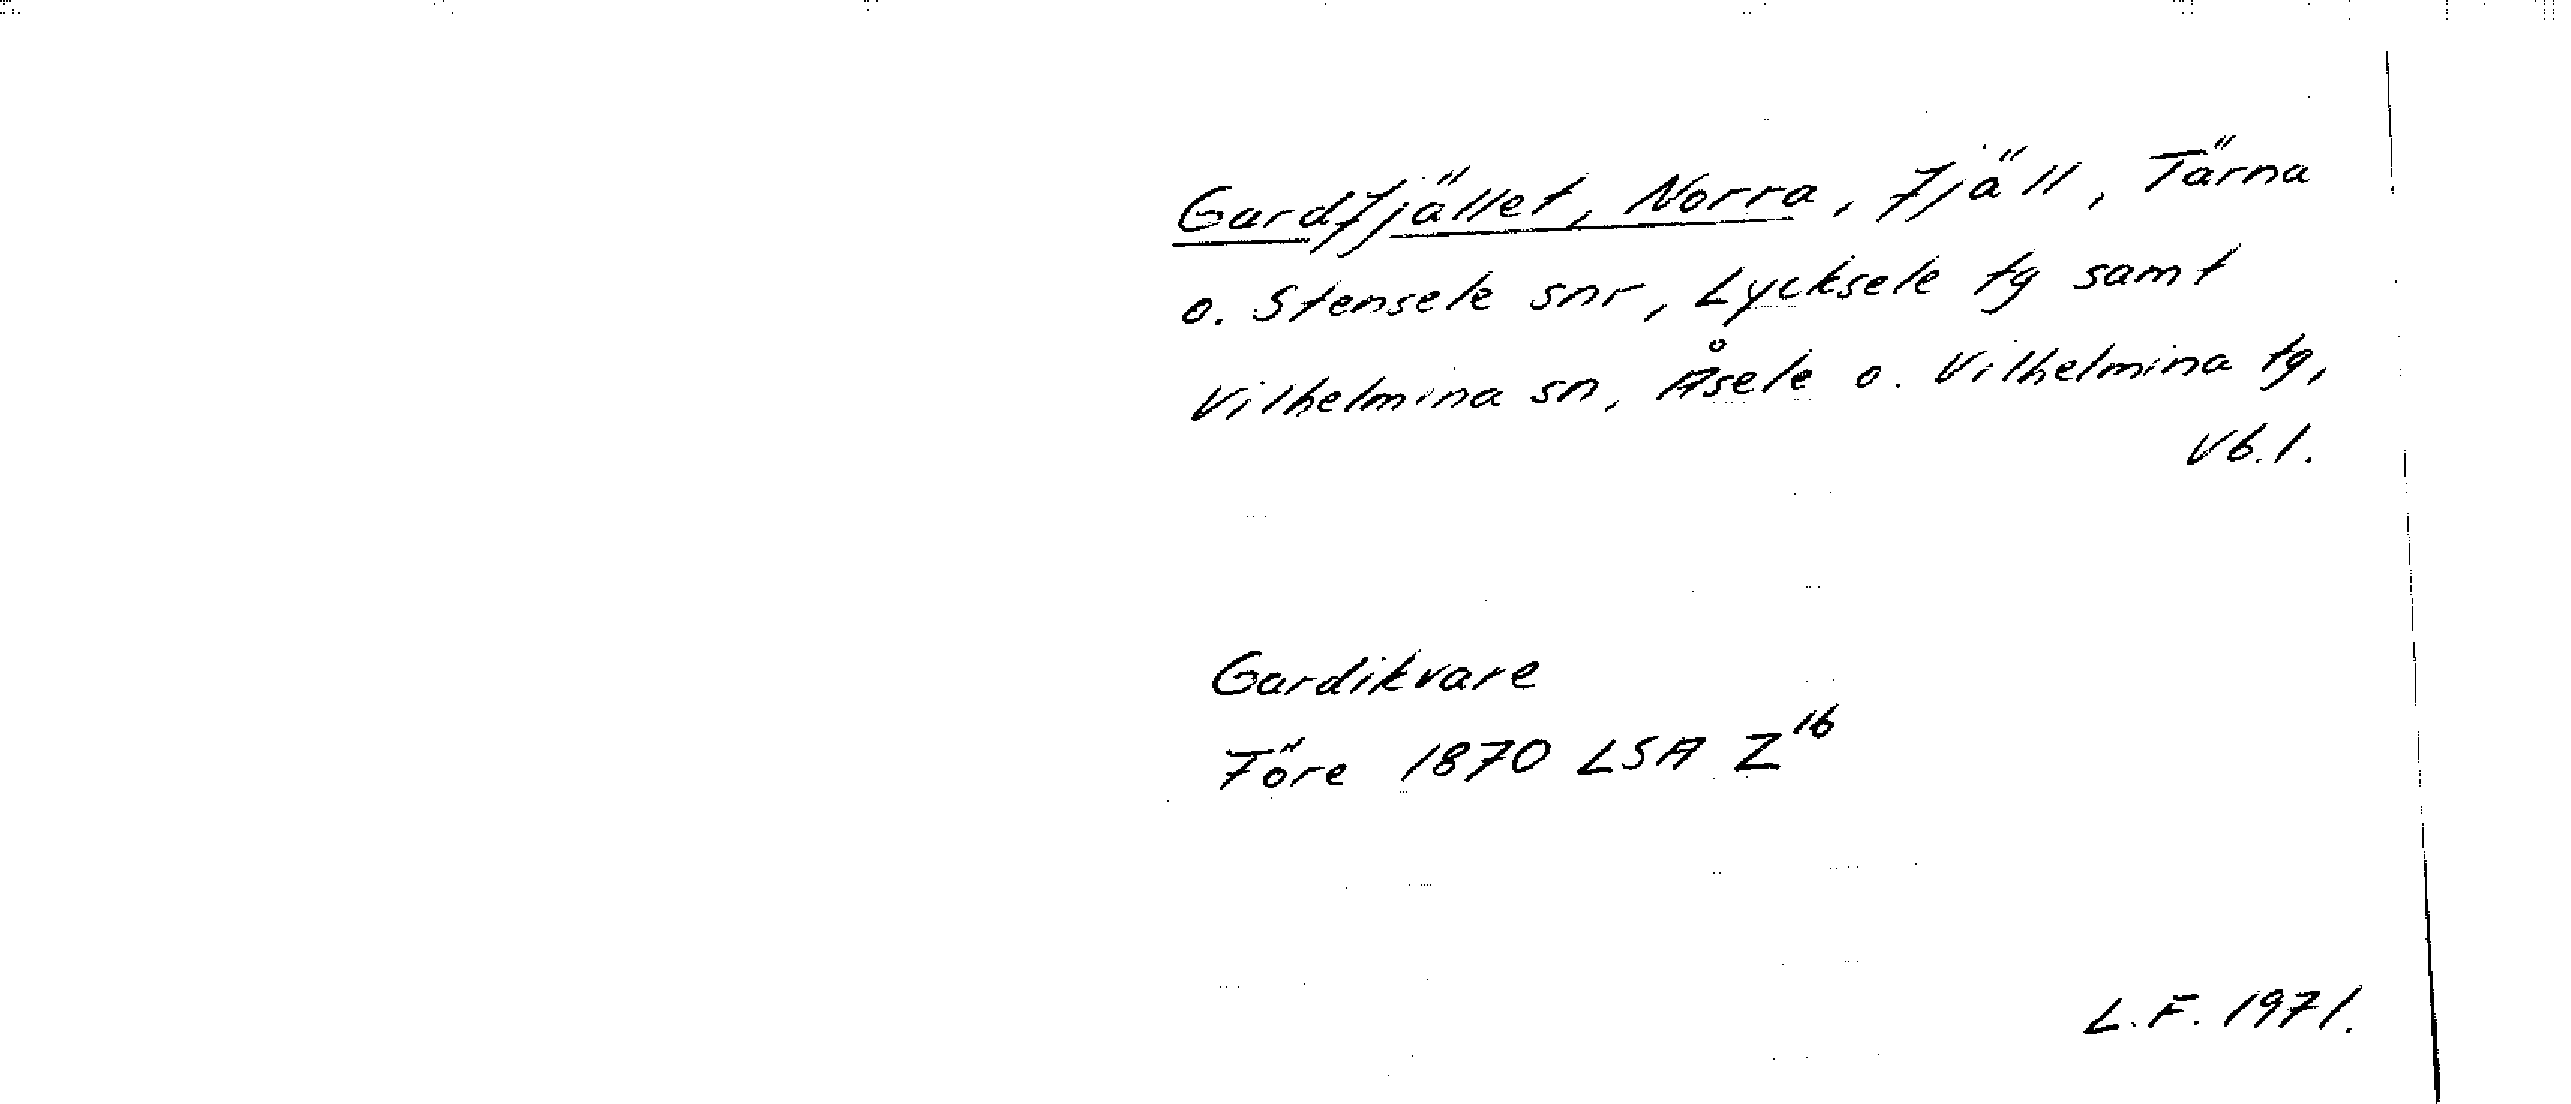 Gardfjället, Norra, fjäll, Tärna
o. Stensele snr, Lycksele tg samt
Vilhelmina sn, Åsele o. Vilhelmina tg,
Vb.l.
Gardikvare
Före 1870 LSA Z16
L.F. 1971.